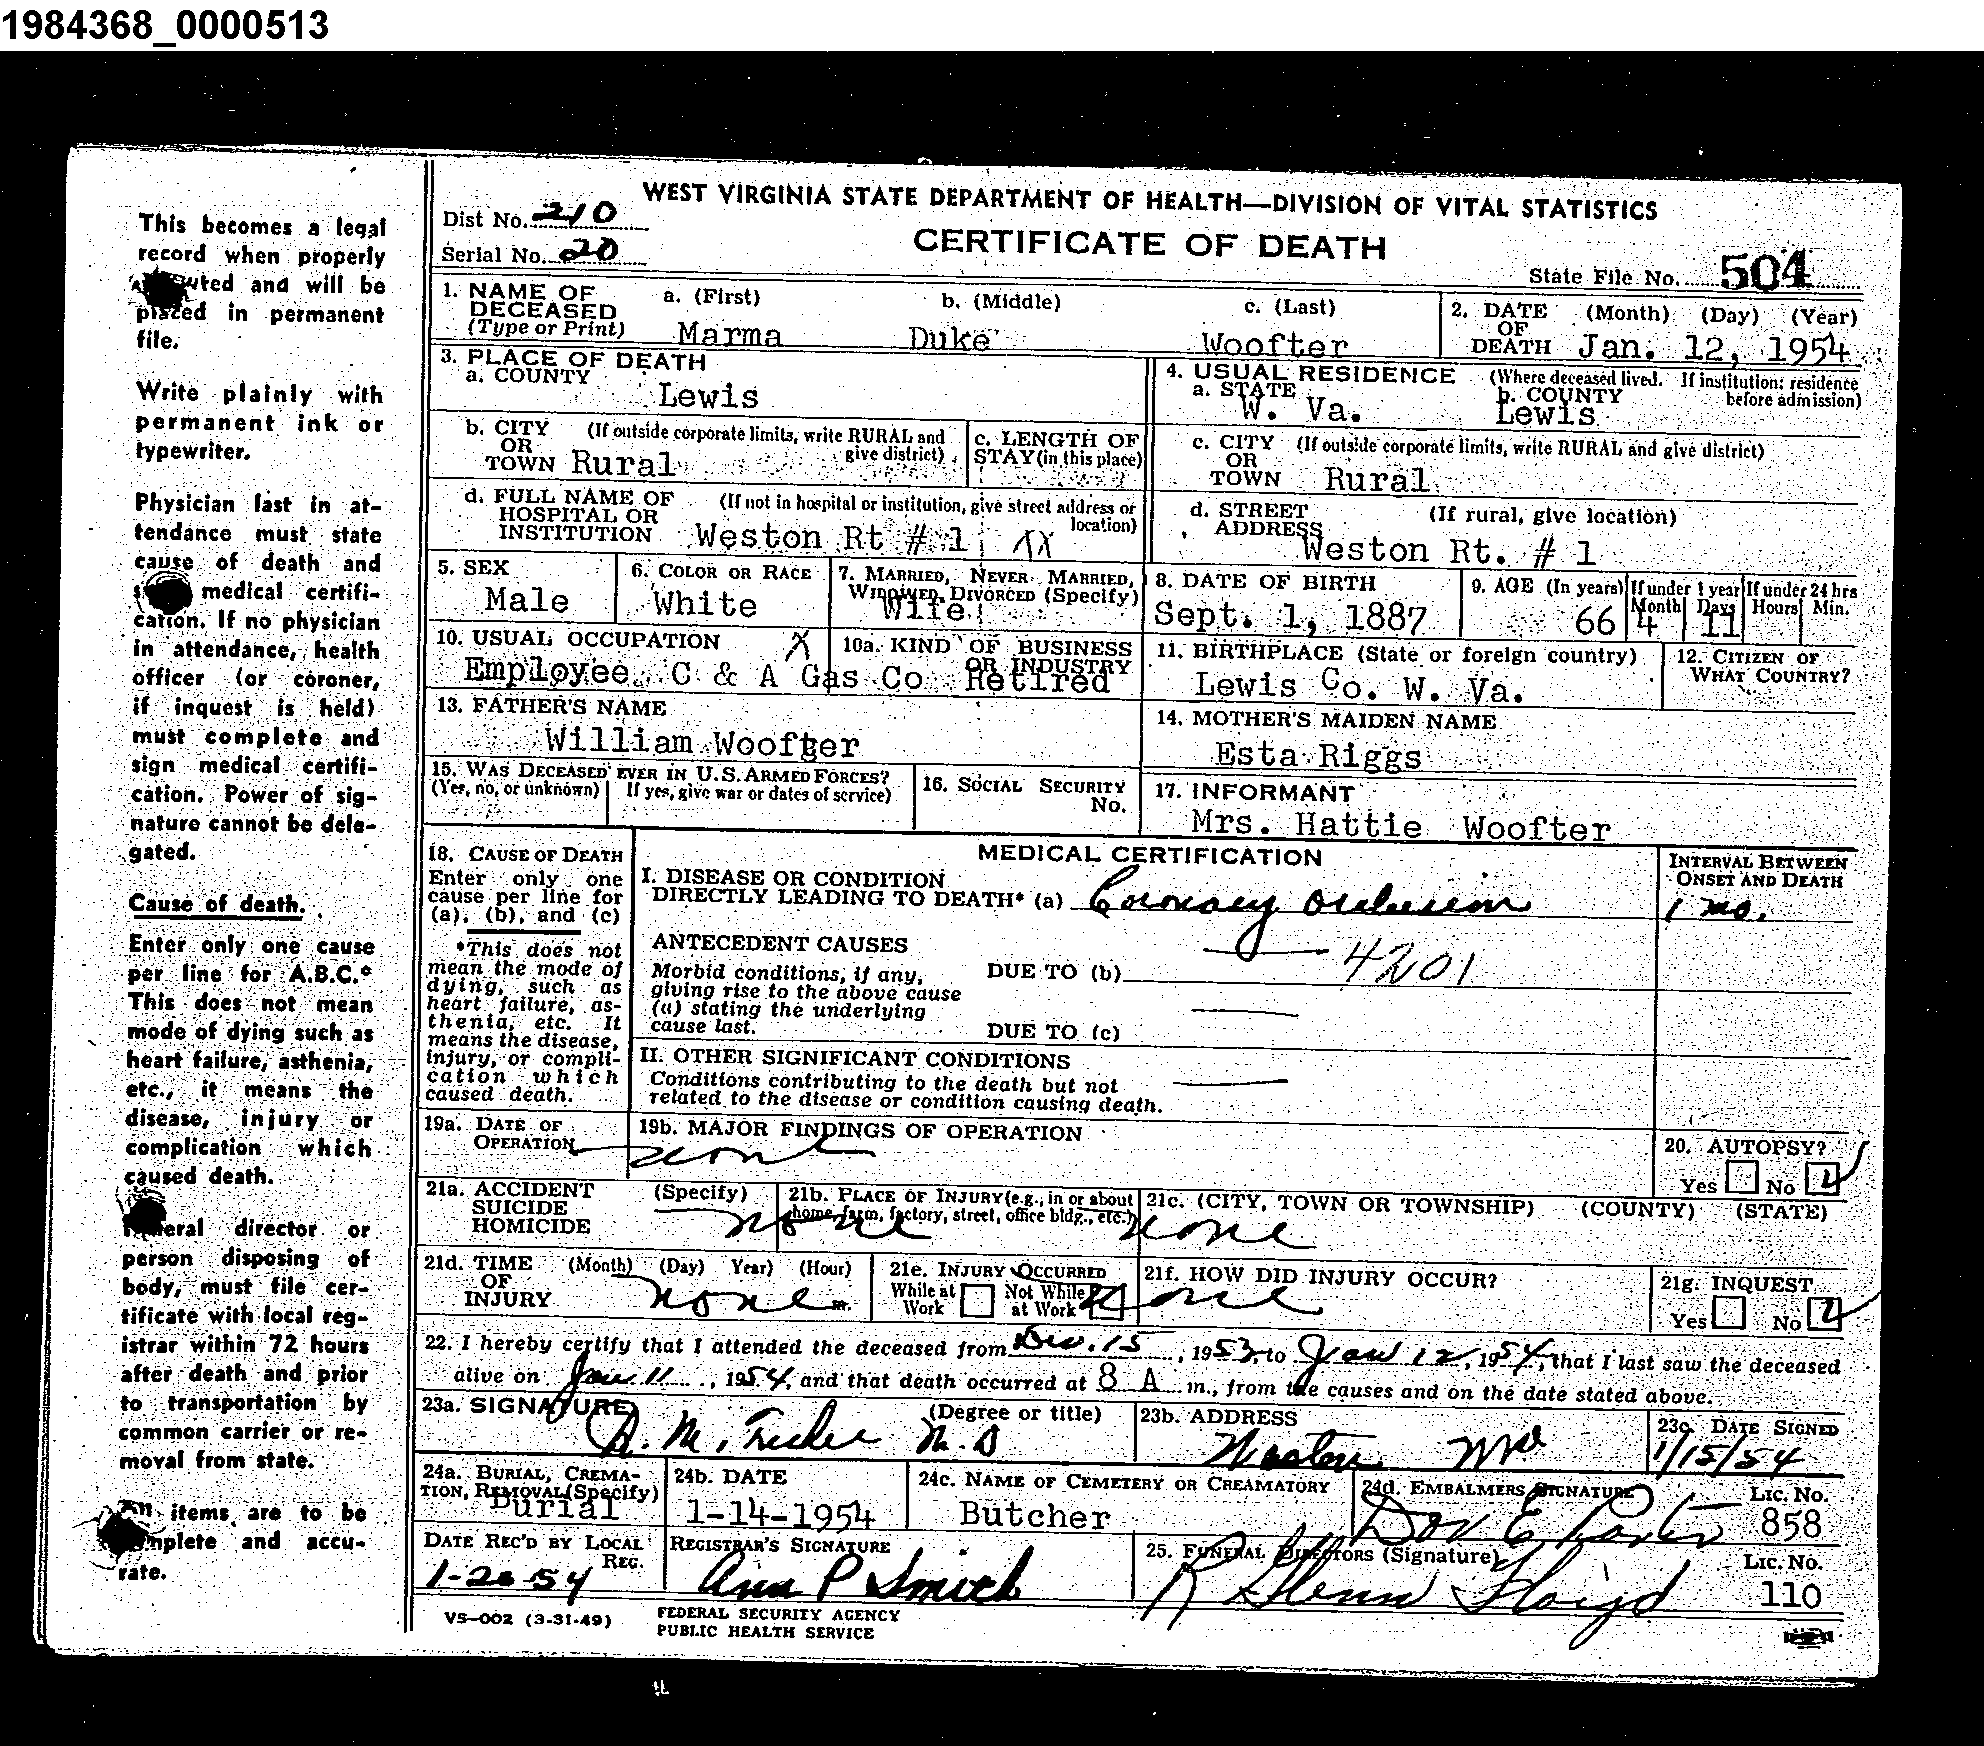 1984368_0000513
WEST VIRGINIA STATE DEPARTMENT OF HEALTH—DIVISION OF VITAL STATISTICS
Dist No. 210
CERTIFICATE OF DEATH
Serial No. 20
State File No. 504
This becomes a legal
record when properly
and will be
placed in permanent
file.
Write plainly with
permanent ink or
typewriter.
Physician last in at-
tendance must state
cause of death and
medical certifi-
cation. If no physician
in attendance, health
officer (or coroner,
if inquest is held)
must complete and
sign medical certifi-
cation. Power of sig-
nature cannot be dele-
gated.
Cause of death.
Enter only one cause
per line for A.B.C.*
This does not mean
mode of dying such as
heart failure, asthenia,
etc., it means the
disease, injury or
complication which
caused death.
director or
person disposing of
body, must file cer-
tificate with local reg-
istrar within 72 hours
after death and prior
to transportation by
common carrier or re-
moval from state.
items are to be
complete and accu-
rate.
1. NAME OF DECEASED (Type or Print)
a. (First) b. (Middle) c. (Last)
Marma Duke Woofter
2. DATE OF DEATH (Month) (Day) (Year)
Jan. 12, 1954
3. PLACE OF DEATH
a. COUNTY
Lewis
4. USUAL RESIDENCE (Where deceased lived. If institution: residence before admission)
a. STATE W. Va.
b. COUNTY Lewis
b. CITY OR TOWN (If outside corporate limits, write RURAL and give district)
Rural
c. LENGTH OF STAY (in this place)
c. CITY OR TOWN (If outside corporate limits, write RURAL and give district)
Rural
d. FULL NAME OF HOSPITAL OR INSTITUTION (If not in hospital or institution, give street address or location)
Weston Rt # 1
d. STREET ADDRESS (If rural, give location)
Weston Rt. # 1
5. SEX
Male
6. COLOR OR RACE
White
7. MARRIED, NEVER MARRIED, WIDOWED, DIVORCED (Specify)
Wife
8. DATE OF BIRTH
Sept. 1, 1887
9. AGE (In years) If under 1 year If under 24 hrs
Month Days Hours Min.
66 4 11
10. USUAL OCCUPATION X
10a. KIND OF BUSINESS OR INDUSTRY
Employee C & A Gas Co Retired
11. BIRTHPLACE (State or foreign country)
Lewis Co. W. Va.
12. CITIZEN OF WHAT COUNTRY?
13. FATHER'S NAME
William Woofter
14. MOTHER'S MAIDEN NAME
Esta Riggs
15. WAS DECEASED EVER IN U.S. ARMED FORCES?
(Yes, no, or unknown) If yes, give war or dates of service)
16. SOCIAL SECURITY No.
17. INFORMANT
Mrs. Hattie Woofter
18. CAUSE OF DEATH
Enter only one
cause per line for
(a), (b), and (c)
*This does not
mean the mode of
dying, such as
heart failure, as-
thenia, etc. It
means the disease,
injury, or compli-
cation which
caused death.
MEDICAL CERTIFICATION
INTERVAL BETWEEN ONSET AND DEATH
I. DISEASE OR CONDITION
DIRECTLY LEADING TO DEATH* (a) Coronary occlusion 1 mo.
ANTECEDENT CAUSES
Morbid conditions, if any,
giving rise to the above cause
(a) stating the underlying
cause last.
DUE TO (b) 4201
DUE TO (c)
II. OTHER SIGNIFICANT CONDITIONS
Conditions contributing to the death but not
related to the disease or condition causing death.
19a. DATE OF OPERATION
19b. MAJOR FINDINGS OF OPERATION
none
20. AUTOPSY?
Yes No
21a. ACCIDENT SUICIDE HOMICIDE (Specify)
21b. PLACE OF INJURY (e.g., in or about home, farm, factory, street, office bldg., etc.)
none
21c. (CITY, TOWN OR TOWNSHIP) (COUNTY) (STATE)
none
21d. TIME OF INJURY (Month) (Day) Year) (Hour)
none m.
21e. INJURY OCCURRED
While at Work Not While at Work
21f. HOW DID INJURY OCCUR?
none
21g. INQUEST
Yes No
22. I hereby certify that I attended the deceased from Dec. 15, 1953, to Jan 12, 1954, that I last saw the deceased
alive on Jan 11, 1954, and that death occurred at 8 A m., from the causes and on the date stated above.
23a. SIGNATURE (Degree or title)
M. D
23b. ADDRESS
Weston WVa
23c. DATE SIGNED
1/15/54
24a. BURIAL, CREMA-
TION, REMOVAL (Specify)
Burial
24b. DATE
1-14-1954
24c. NAME OF CEMETERY OR CREAMATORY
Butcher
24d. EMBALMERS SIGNATURE Lic. No.
858
DATE REC'D BY LOCAL REG.
1-26-54
REGISTRAR'S SIGNATURE
Ann P Smith
25. FUNERAL DIRECTORS (Signature) Lic. No.
R Glenn Floyd 110
VS—002 (3-31-49)
FEDERAL SECURITY AGENCY
PUBLIC HEALTH SERVICE